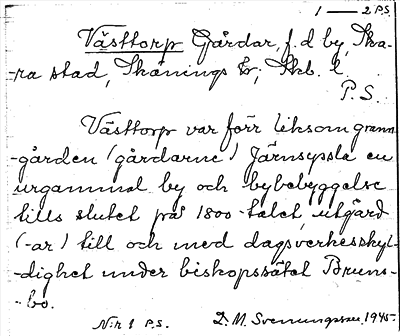 1 — 2 P.S.
Västtorp Gårdar, f.d by, Ska-
-ra stad, Skånings hr, Skb. l.
P.S.
Västtorp var förr liksom grann-
-gården (gårdarne) Järnsyssla en
urgammal by och bybebyggelse
tills slutet på 1800-talet, utgård
(-ar) till och med dagsverksskyl-
-dighet under biskopssätet Bruns-
-bo.
N:r 1 P.S. D. M. Svenungsson, 1945.